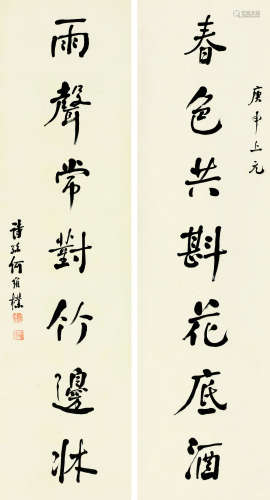 庚申上元
春色共斟花底酒
雨聲常對竹邊牀
詩孫何維樸